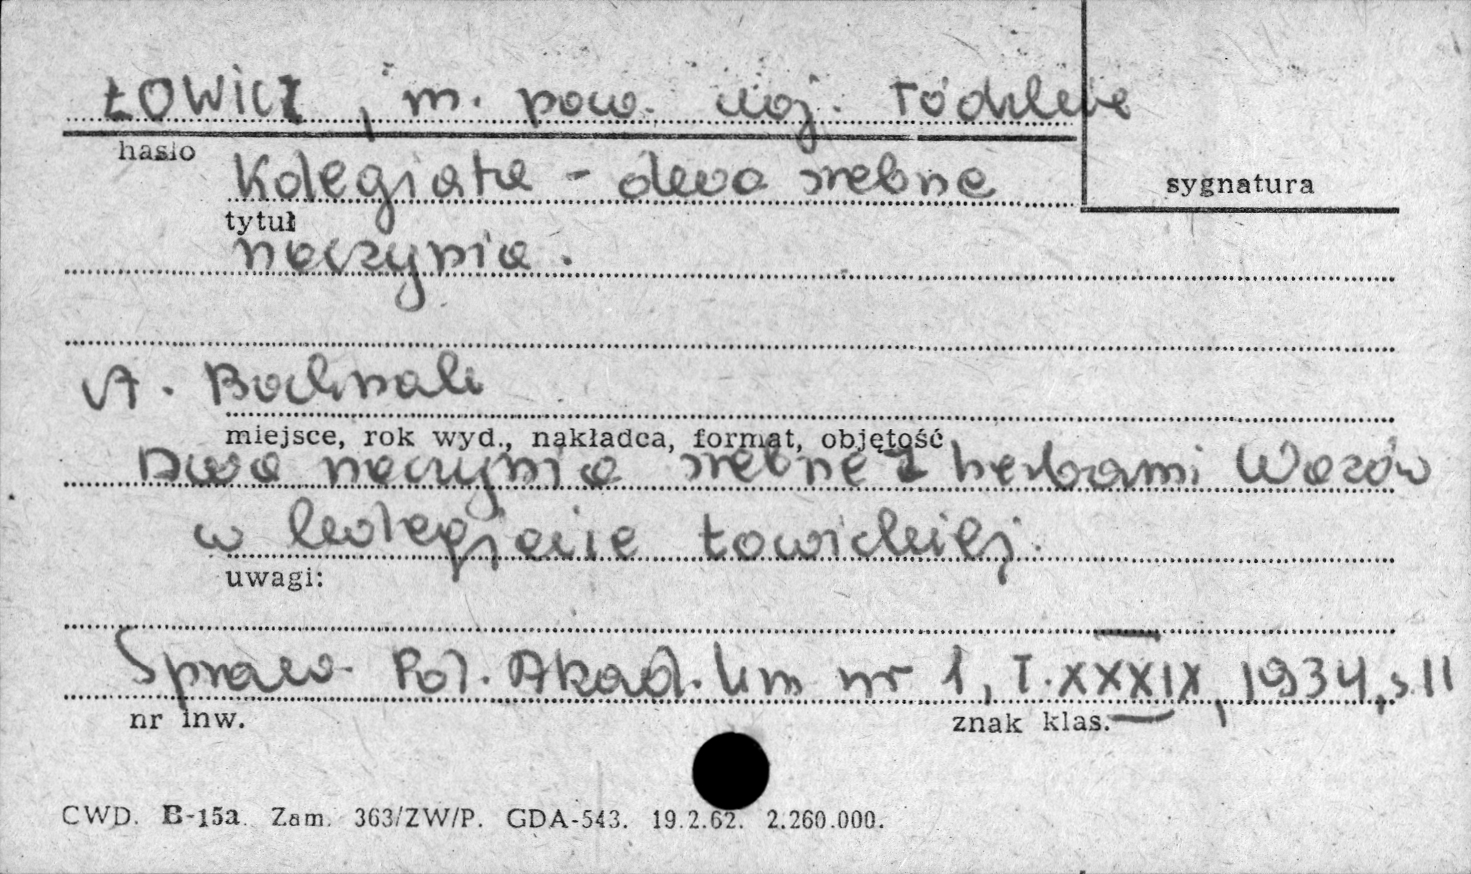 ŁOWICZ, m. pow. woj. łódzkie
hasło
sygnatura
Kolegiata - dwa srebne
tytuł
naczynia.
A. Bochnak
miejsce, rok wyd., nakładca, format, objętość
Dwa naczynia srebne z herbami Wazów
w kolegiacie łowickiej.
uwagi:
Spraw. Pol. Akad. Um nr 1, T. XXXIX, 1934, s. 11
nr inw.
znak klas.
CWD. B-15a. Zam. 363/ZW/P. GDA-543. 19.2.62. 2.260.000.